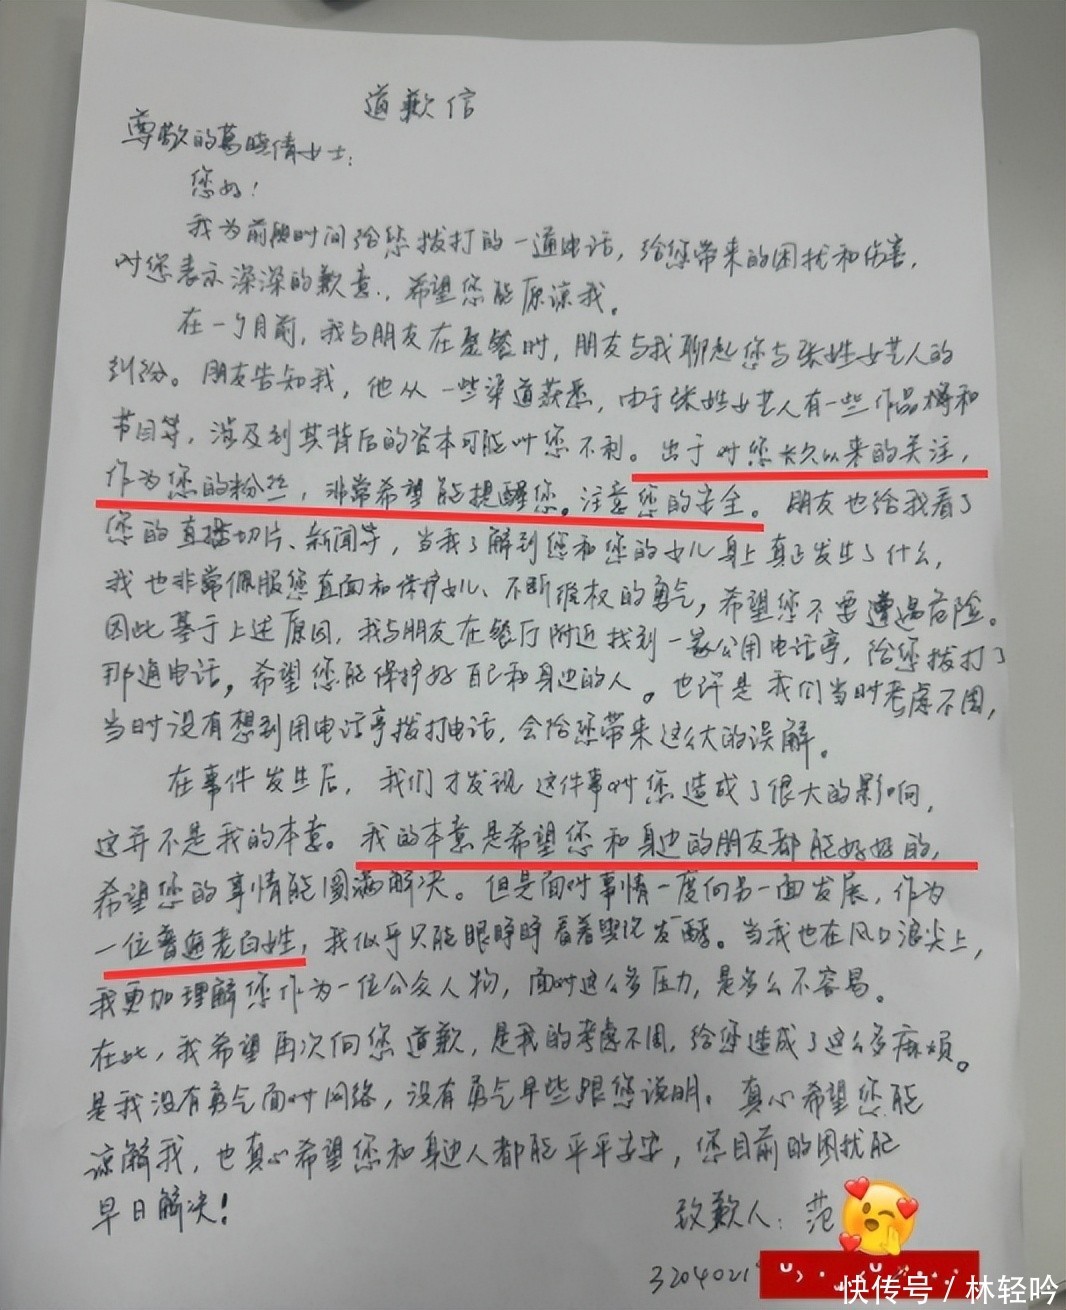 道歉信
尊敬的葛晓倩女士:
您好!
我为前段时间给您拨打的一通电话,给您带来的困扰和伤害,
对您表示深深的歉意,希望您能原谅我。
在一个月前,我与朋友在聚餐时,朋友与我聊起您与张姓女艺人的
纠纷。朋友告知我,他从一些渠道获悉,由于张姓女艺人有一些作品将和
节目等,涉及到其背后的资本可能对您不利。出于对您长久以来的关注,
作为您的粉丝,非常希望能提醒您。注意您的安全。朋友也给我看了
您的直播切片、新闻等,当我了解到您和您的女儿身上真正发生了什么,
我也非常佩服您直面和保护女儿、不断维权的勇气,希望您不要遭遇危险。
因此基于上述原因,我与朋友在餐厅附近找到一家公用电话亭,给您拨打了
那通电话。希望您能保护好自己和身边的人。也许是我们当时考虑不周,
当时没有想到用电话亭拨打电话,会给您带来这么大的误解。
在事件发生后,我们才发现这件事对您造成了很大的影响,
这并不是我的本意。我的本意是希望您和身边的朋友都能好好的,
希望您的事情能圆满解决。但是面对事情一度向另一面发展,作为
一位普通老百姓,我似乎只能眼睁睁看着舆论发酵。当我也在风口浪尖上,
我更加理解您作为一位公众人物,面对这么多压力,是多么不容易。
在此,我希望再次向您道歉,是我的考虑不周,给您造成了这么多麻烦。
是我没有勇气面对网络,没有勇气早些跟您说明。真心希望您能
谅解我,也真心希望您和身边人都能平平安安,您目前的困扰能
早日解决!
致歉人:范
3204021
快传号/林轻吟